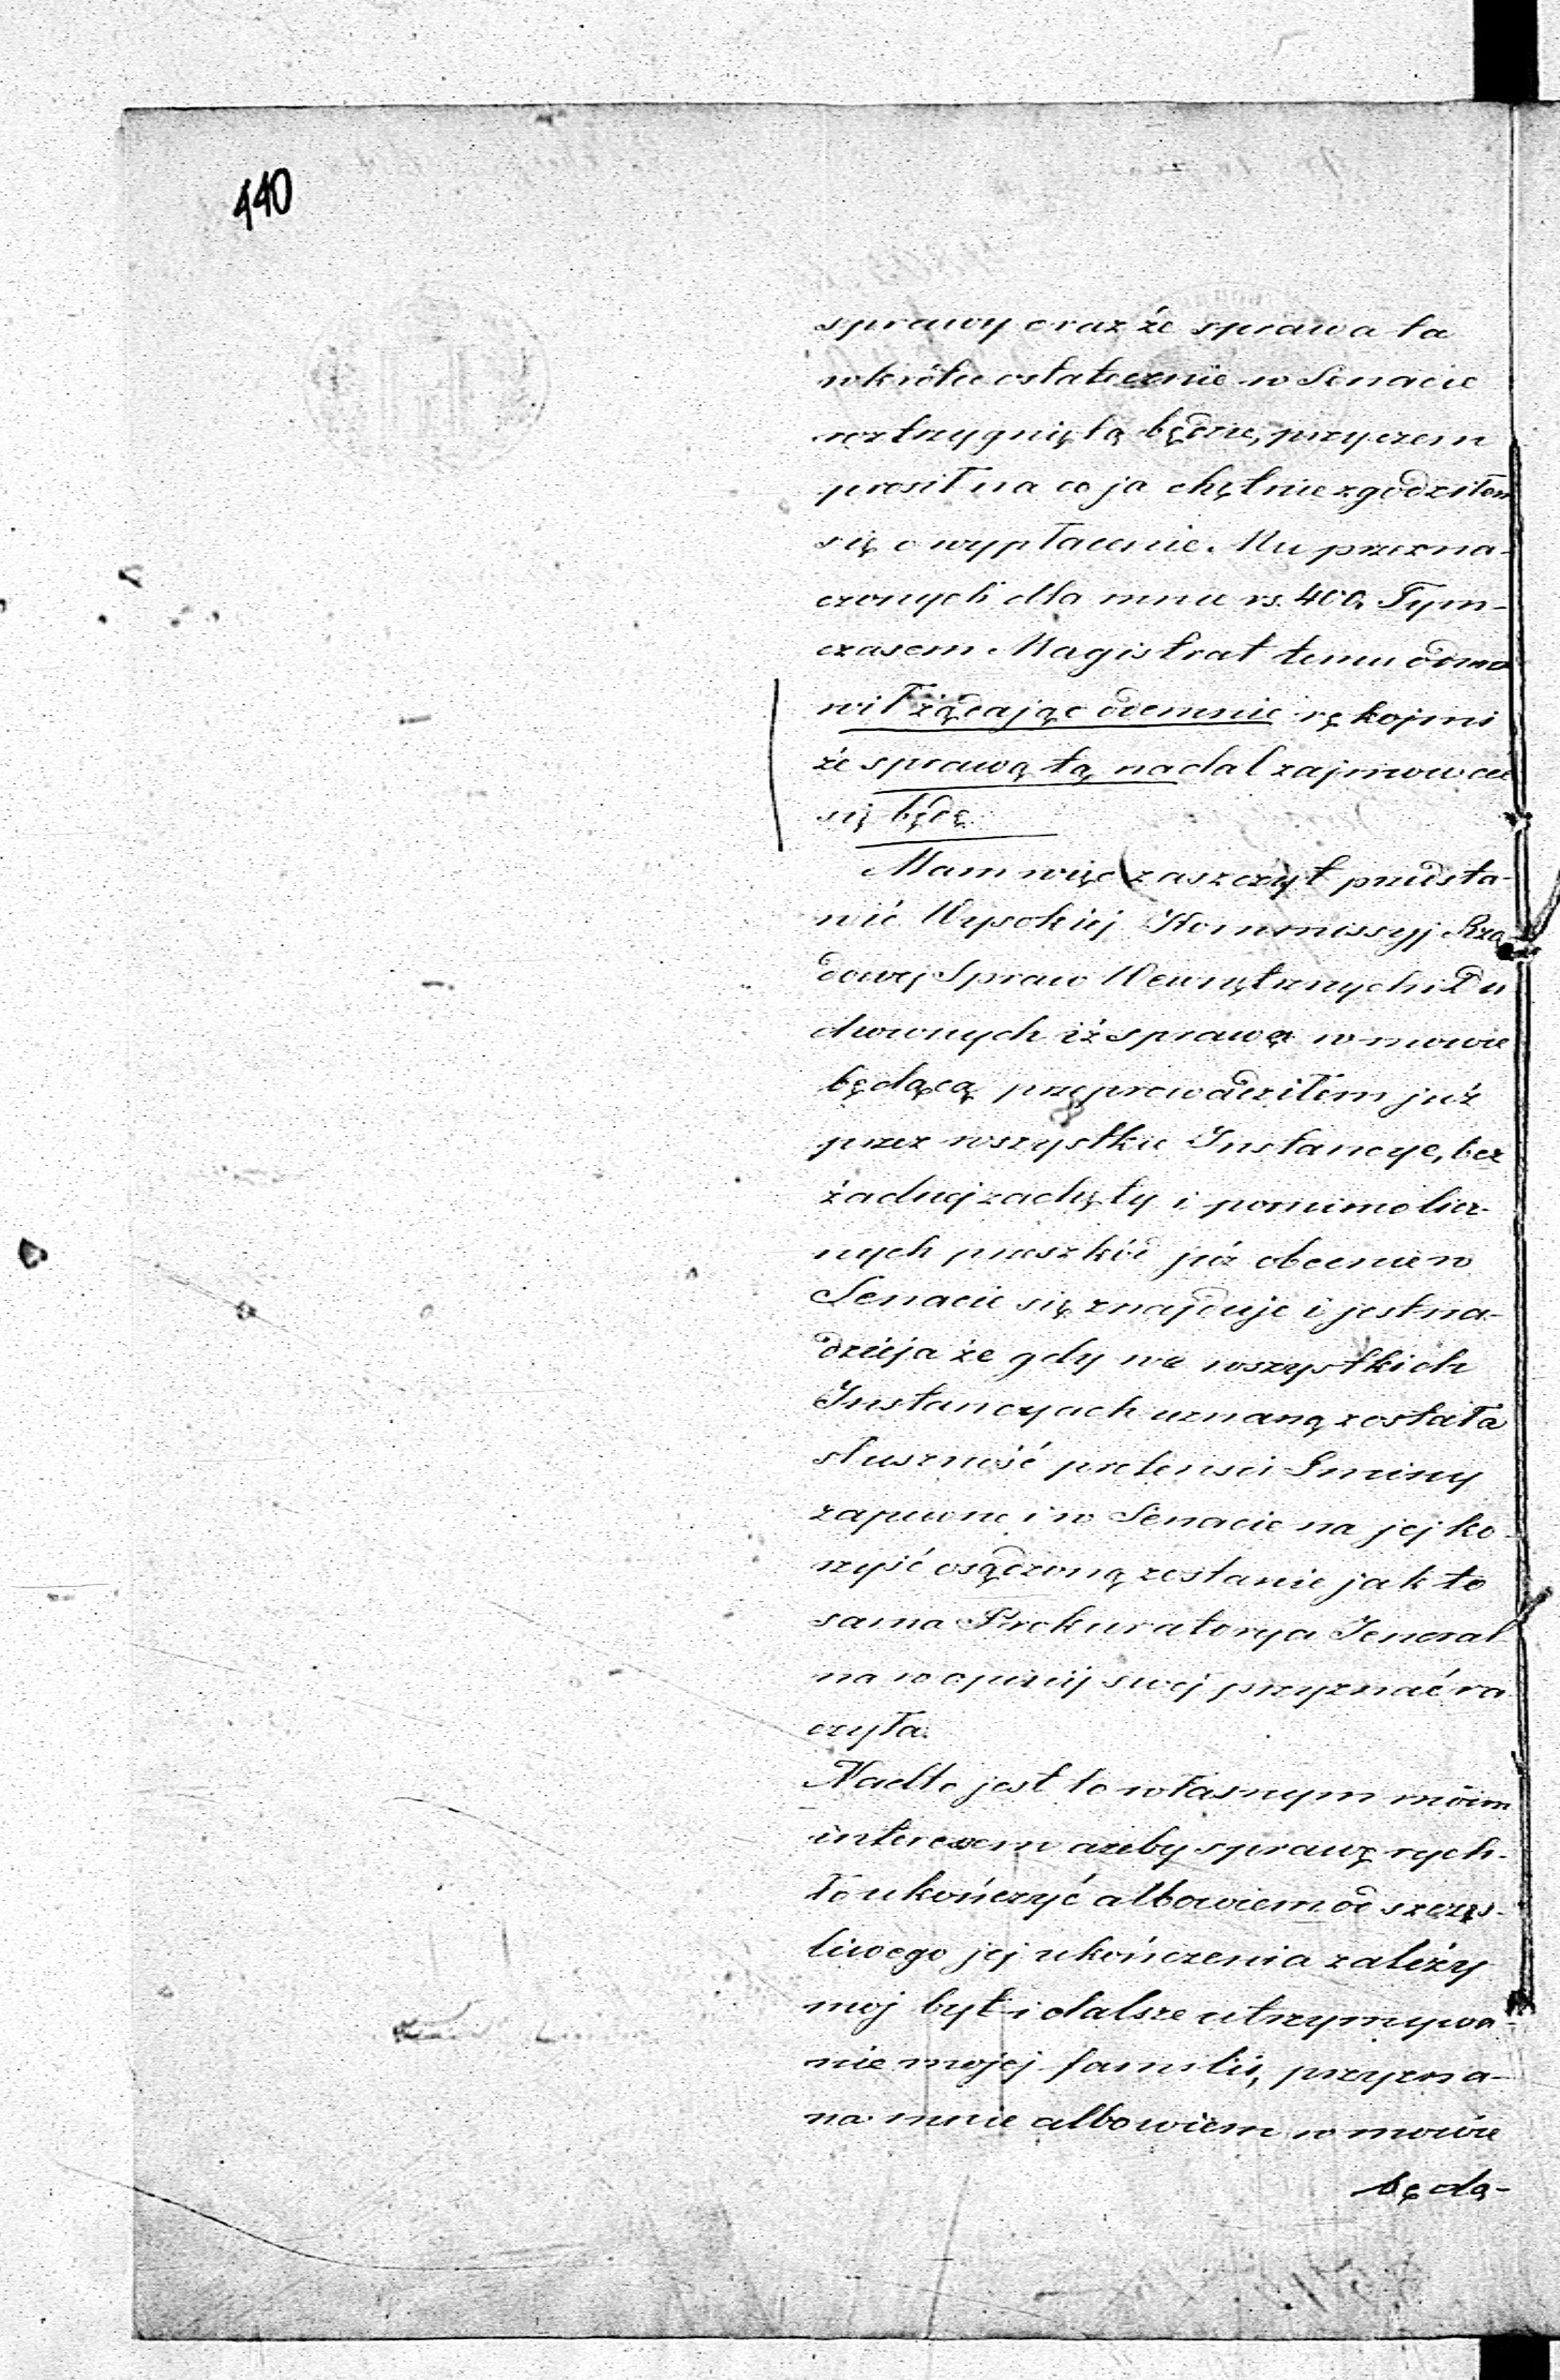 440
sprawy oraz że sprawa ta
wkrótce ostatecznie w Senacie
roztrzygniętą będzie, przyczem
prosił na co ja chętnie zgodziłem
się o wypłacenie Mu przezna-
czonych dla mnie rs. 400. Tym-
czasem Magistrat temu odmó
wił żądając odemnie rękojmi
że sprawą tą nadal zajmować
się będę.
Mam więc zaszczyt przedsta-
wić Wysokiej Kommissyj Rzą
dowej Spraw Wewnętrznych i Du
chownych iż sprawę w mowie
będącą przeprowadziłem już
przez wszystkie Instancye, bez
żadnej zachęty i pomimo licz-
nych przeszkód już obecnie w
Senacie się znajduje i jest na-
dzieja że gdy we wszystkich
Instancyach uznaną została
słuszność pretensi Gminy
zapewne i w Senacie na jej ko-
rzyść osądzoną zostanie jak to
sama Prokuratorya Jeneral
na w opinij swej przyznać ra
czyła.
Nadto jest to własnym moim
interesem ażeby sprawę rych-
ło ukończyć albowiem od szczęs-
liwego jej ukończenia zależy
moj byt i dalsze utrzymywa-
nie mojej familii, przyzna-
na mnie albowiem w mowie
będą-